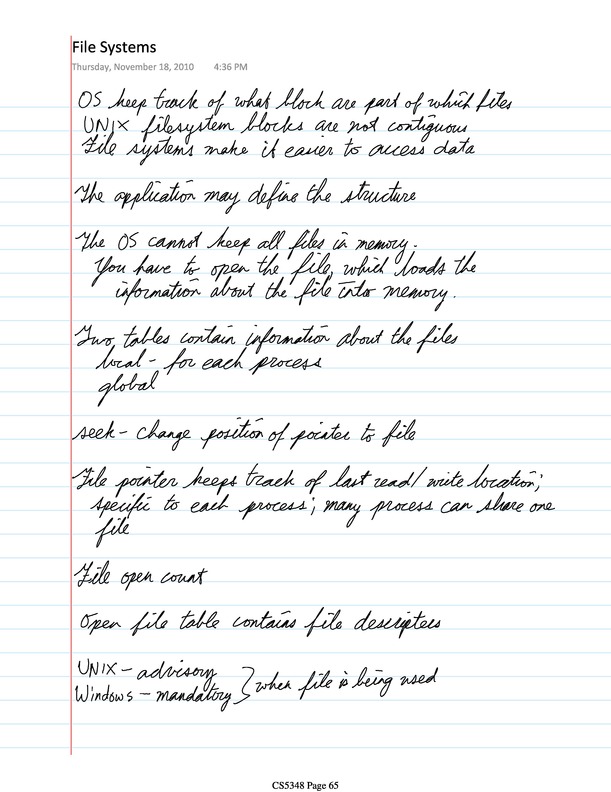 File Systems
Thursday, November 18, 2010 4:36 PM
OS keep track of what block are part of which files
UNIX filesystem blocks are not contiguous
File systems make it easier to access data
The application may define the structure
The OS cannot keep all files in memory.
You have to open the file, which loads the
information about the file into memory.
Two tables contain information about the files
local - for each process
global
seek - change position of pointer to file
File pointer keeps track of last read/write location;
specific to each process; many process can share one
file
File open count
Open file table contains file descripters
UNIX - advisory
Windows - mandatory } when file is being used
CS5348 Page 65